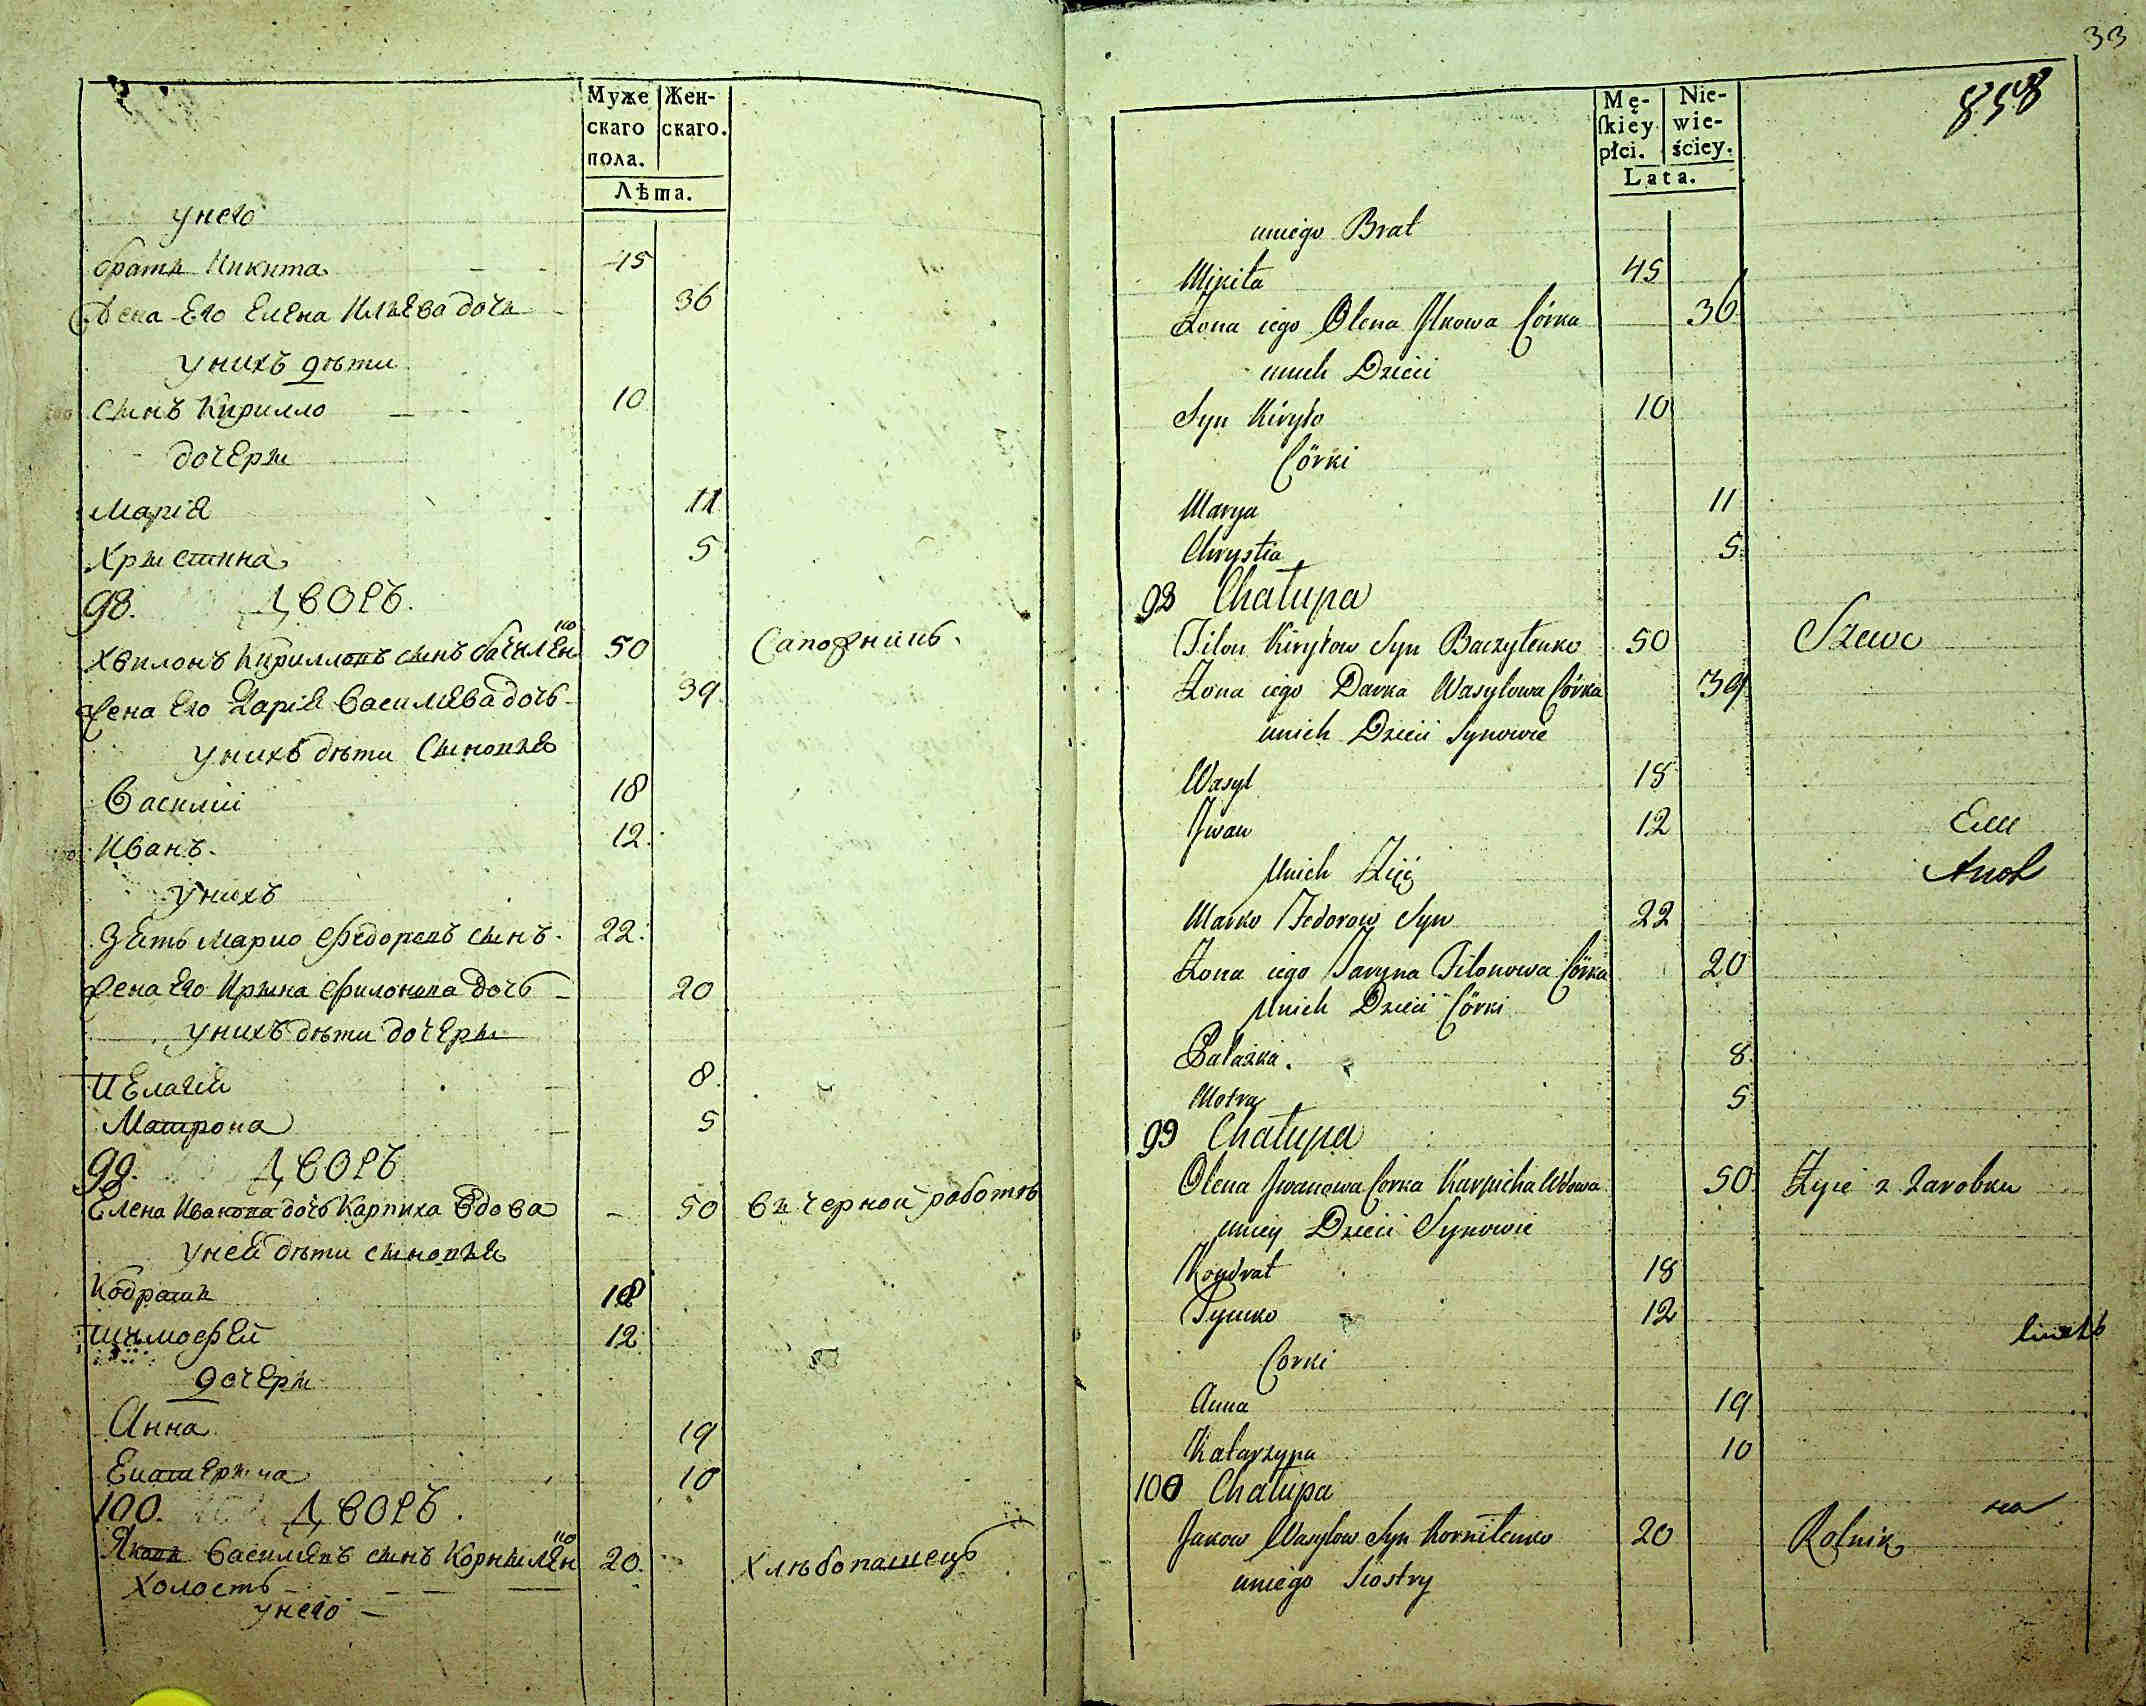 Муже
скаго
пола.
Жен-
скаго.
Лѣта.
унего
братъ Никита 45
Жена Его Елена Ильева дочь 36
унихъ дѣти
сынъ Кирилло 10
дочери
Марія 11
Христина 5
98. Дворъ.
Хвилонъ Кирилловъ сынъ бачиленко 50 Сапожникъ.
Жена Его Дарія Васильева дочь 39
унихъ дѣти Сыновья
Василій 18
Иванъ. 12.
унихъ
Зять Марко Федоровъ сынъ. 22.
Жена Его Ирина Филонова дочь 20
унихъ дѣти дочери
Пелагія 8.
Матрона 5
99. Дворъ
Елена Иванова дочь Карпиха вдова 50 въ черной работѣ
уней дѣти сыновья
Кодратъ 18
тимофей 12.
дочери
Анна 19
Екатерина 10
100. Дворъ.
Яковъ Васильевъ сынъ Корниленко 20. Хлѣбопашецъ
Холостъ
унего
33
858
Mę-
skiey
płci.
Nie-
wie-
ściey.
Lata.
uniego Brat
Mikita 45
Żona iego Olena Ilkowa Córka 36
unich Dzieci
Syn Kiryło 10
Córki
Marya 11
Chrystia 5
98 Chałupa
Filon Kiryłow Syn Baczyłenko 50 Szewc
Żona iego Darka Wasylowa Córka 39
unich Dzieci Synowie
Wasyl 18
Jwan 12
Unich Zięć
Marko Fedorow Syn 22
Żona iego Jaryna Filonowa Córka 20
Unich Dzieci Córki
Pałażka. 8
Motra 5
99 Chałupa
Olena Jwanowa Corka Karpicha Wdowa 50 Żyie z Zarobku
uniey Dzieci Synowie
Kondrat 18
Tymko 12
Corki
Anna 19
Katarzyna 10
100 Chałupa
Jakow Wasylow Syn Korniłenko 20 Rolnik
uniego Siostry